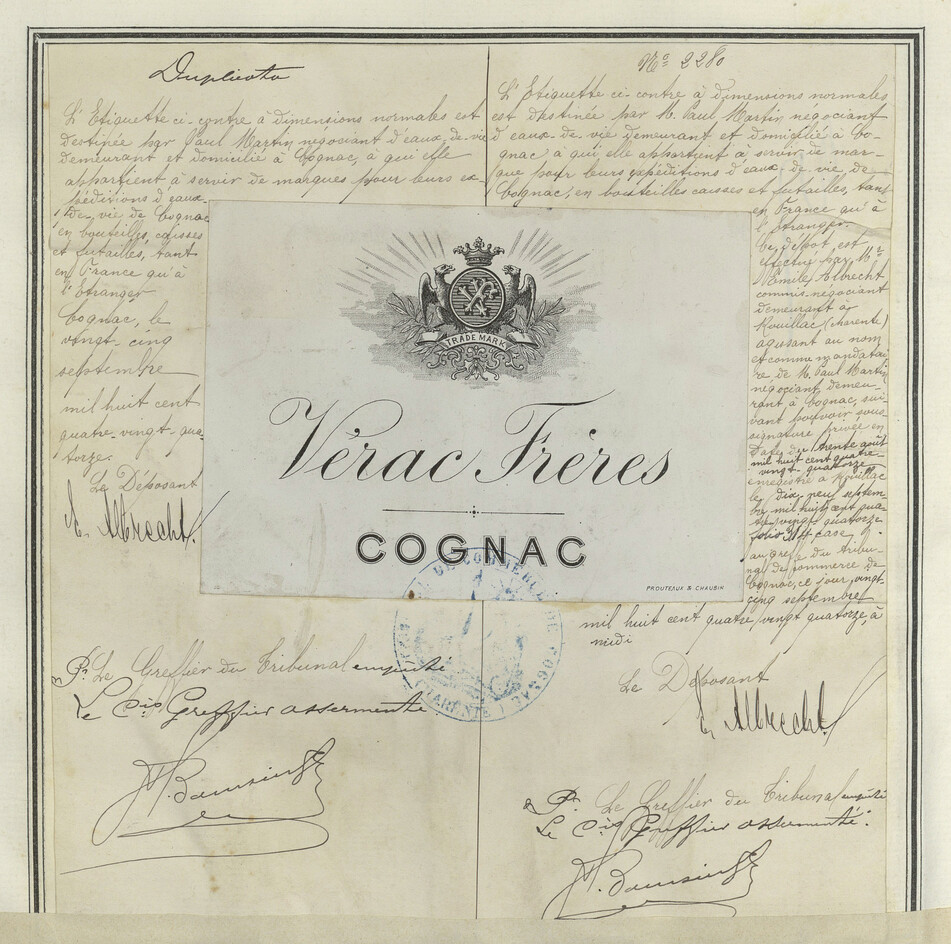 Duplicata
L'Etiquette ci-contre à dimensions normales est
destinée par Paul Martin négociant d'eaux-de-vie
demeurant et domicilié à Cognac, à qui elle
appartient à servir de marques pour leurs ex-
péditions d'eaux-
de vie de Cognac
en bouteilles, caisses
et futailles, tant
en France qu'à
l'Etranger
Cognac, le
vingt-cinq
septembre
mil huit cent
quatre-vingt-qua-
torze.
Le Déposant
E. Albrecht
Pr. Le Greffier du Tribunal empêché
Le Cis Greffier assermenté
No 2280
L'Etiquette ci-contre à dimensions normales
est destinée par M. Paul Martin négociant
d'eaux-de-vie demeurant et domicilié à Co-
gnac, à qui elle appartient à servir de mar-
que pour leurs expéditions d'eaux-de-vie de
Cognac, en bouteilles caisses et futailles, tant
en France qu'à
l'étranger.
Ce dépôt est
effectué par Mr
Emile Albrecht
commis-négociant
demeurant à
Rouillac (Charente)
agissant au nom
et comme mandatai-
re de M. Paul Martin
négociant demeu-
rant à Cognac, sui-
vant pouvoir sous-
signature privée en
date du trente août
mil huit cent quatre-
vingt-quatorze
enregistré à Rouillac
le dix neuf septem-
bre mil huit cent qua-
tre vingt quatorze
folio case
au greffe du tribu-
nal de commerce de
Cognac, ce jour, vingt-
cinq septembre
mil huit cent quatre vingt quatorze, à
midi
Le Déposant
E. Albrecht
Pr. Le Greffier du Tribunal empêché
Le Cis Greffier assermenté.
TRADE MARK
Vérac Frères
COGNAC
PROUTEAUX & CHAUBIN
DE COMMERCE DE COGNAC
CHARENTE